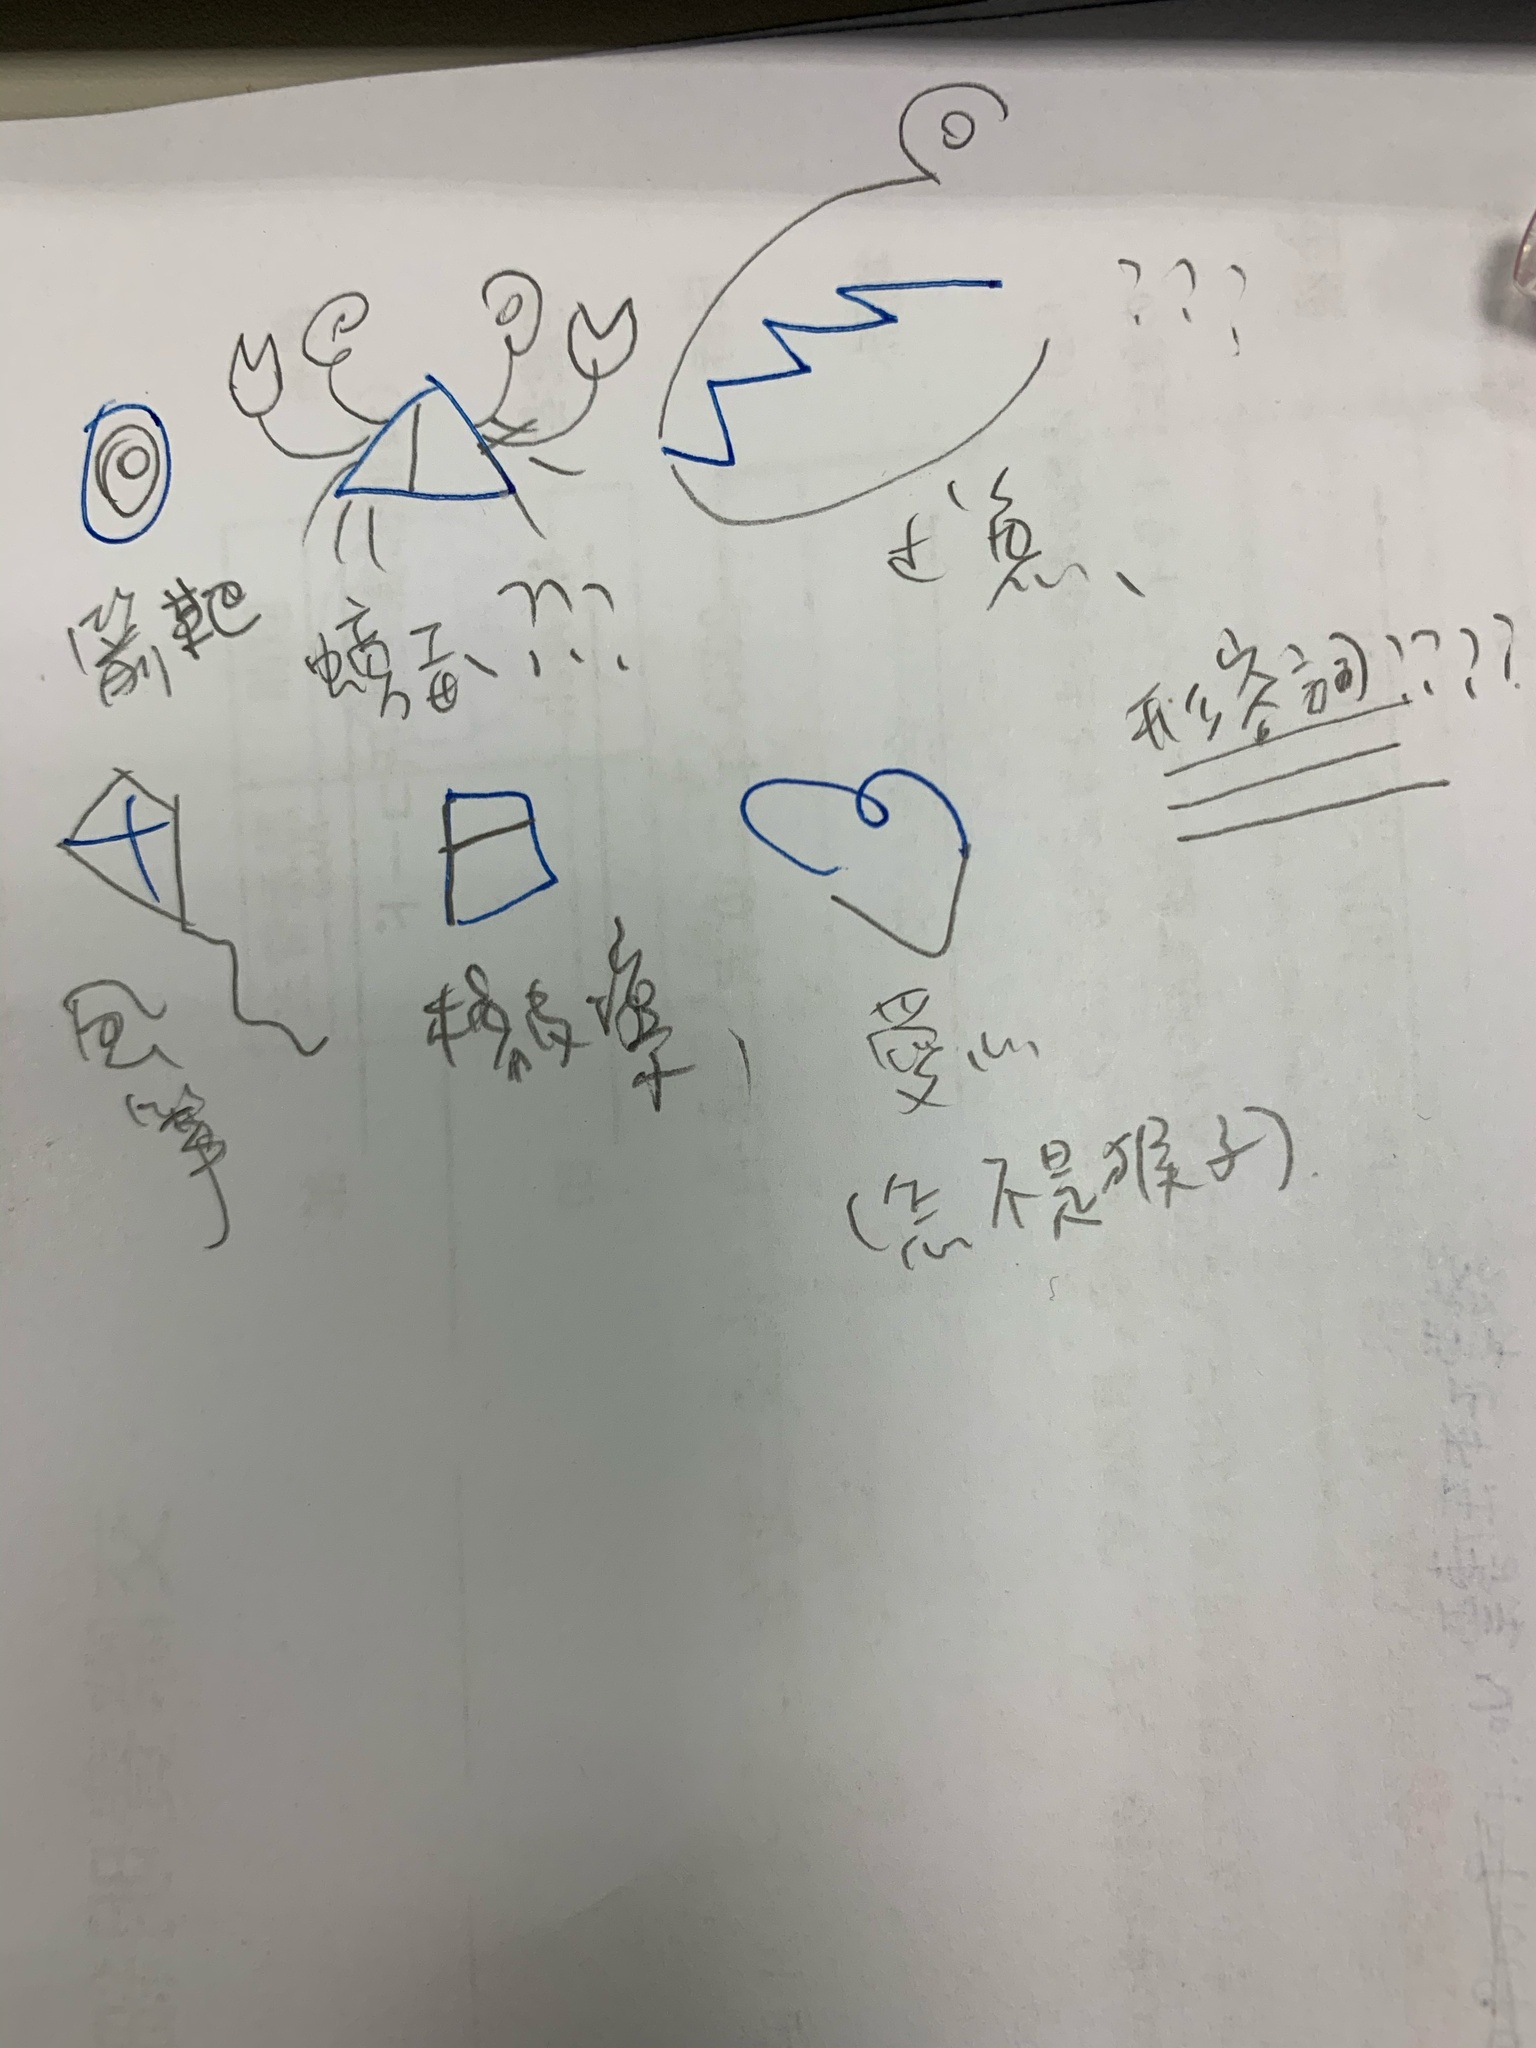 ???
箭靶
螃蟹???
过急、
形容詞????
风筝
橡皮擦、
愛心
(怎不是猴子).